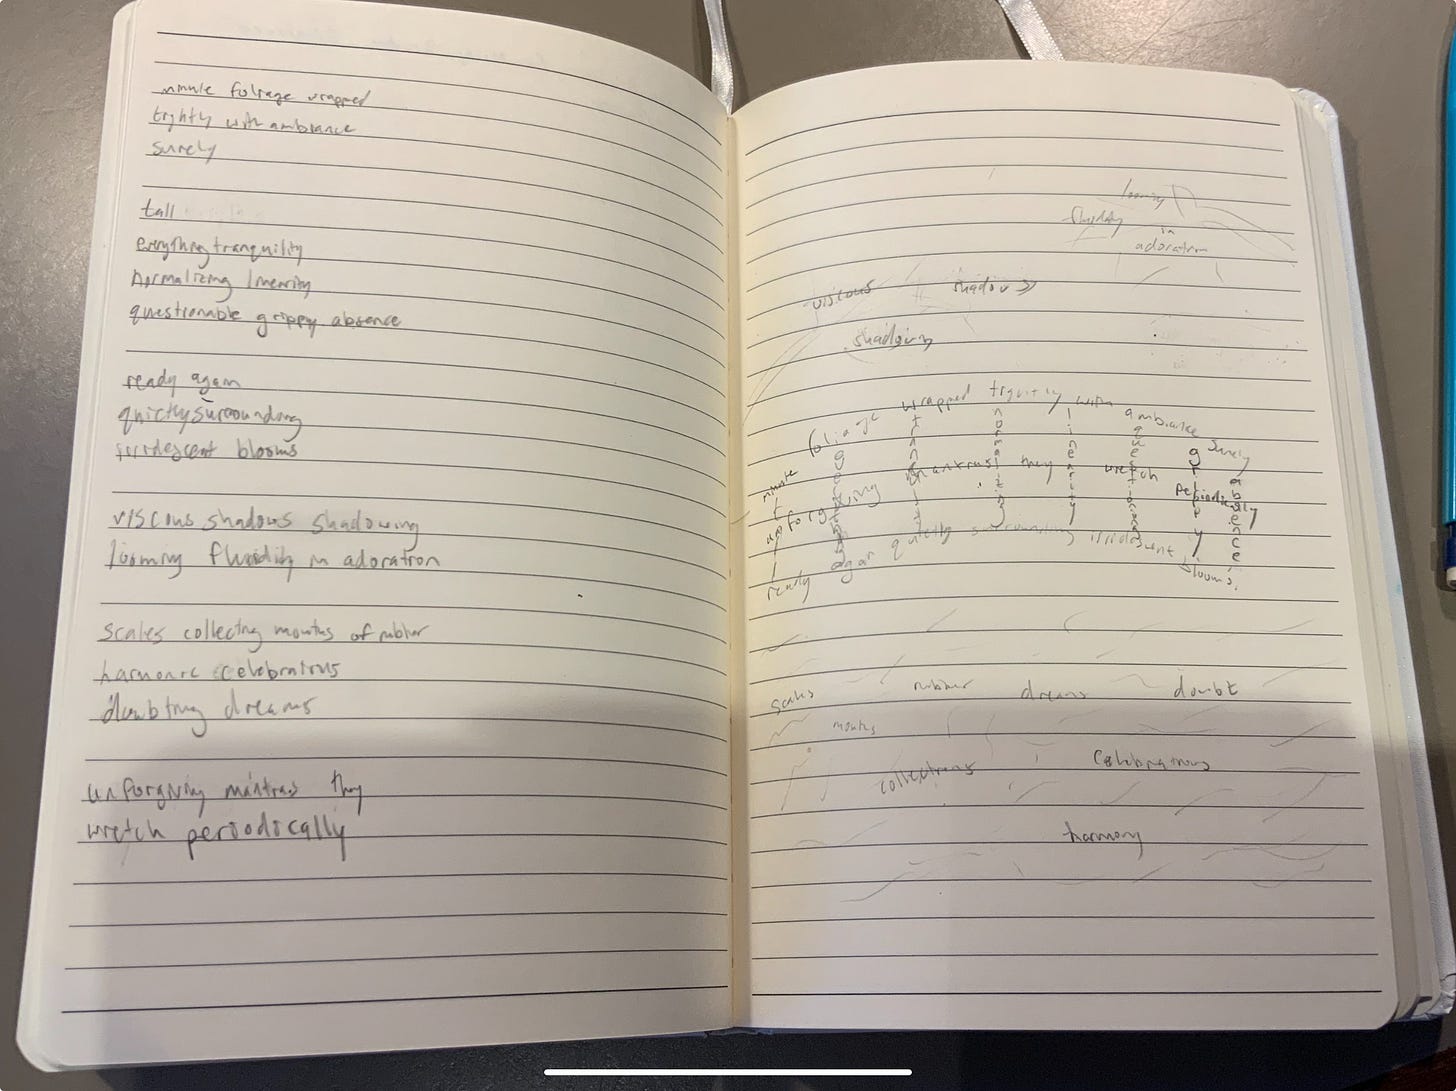 minute foliage wrapped
tightly with ambiance
surely
tall
everything tranquility
normalizing linearity
questionable grippy absence
ready again
quietly surrounding
irridescent blooms
viscous shadows shadowing
looming fluidity in adoration
scales collecting mouths of rubber
harmonic celebrations
doubting dreams
unforgiving mantras they
wretch periodically
looming
fluidity
in
adoration
viscous shadows
shadowing
minute foliage wrapped tightly with ambiance surely
unforgiving mantras they wretch periodically
ready again quietly surrounding irridescent blooms
normalizing
linearity
grippy
absence
scales rubber dreams doubt
mouths
collections celebrations
harmony